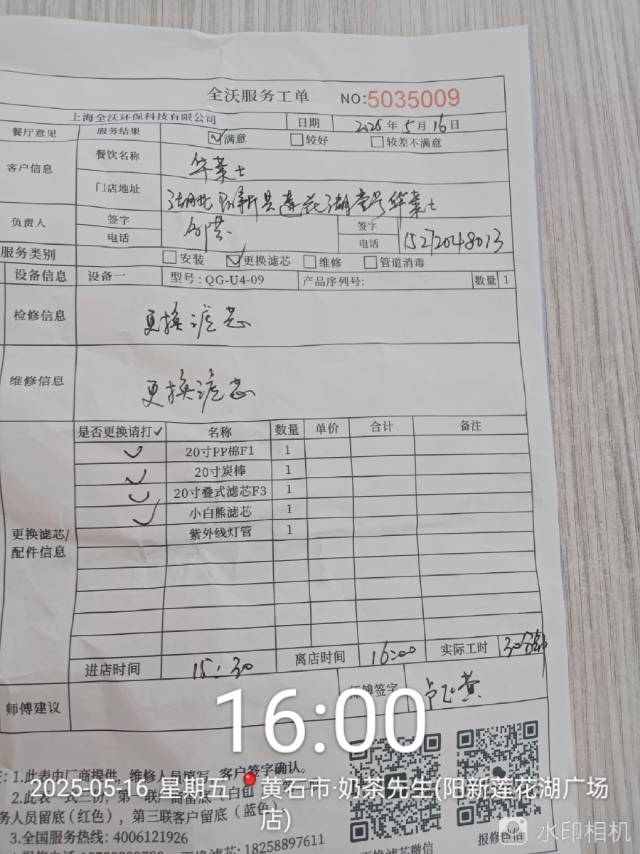 全沃服务工单 NO:5035009
上海全沃环保科技有限公司 日期 2025年5月16日
餐厅意见 服务结果 ☑满意 □较好 □较差不满意
客户信息 餐饮名称 华莱士
门店地址 湖北阳新县莲花湖 华莱士
负责人 签字 签字
电话 电话 15272048073
服务类别 □安装 ☑更换滤芯 □维修 □管道消毒
设备信息 设备一 型号:QG-U4-09 产品序列号: 数量 1
检修信息 更换滤芯
维修信息 更换滤芯
更换滤芯/配件信息
是否更换请打✓ 名称 数量 单价 合计 备注
✓ 20寸PP棉F1 1
✓ 20寸炭棒 1
✓ 20寸叠式滤芯F3 1
✓ 小白熊滤芯 1
紫外线灯管 1
进店时间 15:30 离店时间 16:00 实际工时 30分钟
师傅建议 师傅签字
16:00
2025-05-16 星期五 📍黄石市·奶茶先生(阳新莲花湖广场
店)
1.此表由厂商提供，维修人员填写，客户签字确认。
人员留底(红色)，第三联客户留底(蓝色)
3.全国服务热线:4006121926
18258897611
报修
水印相机